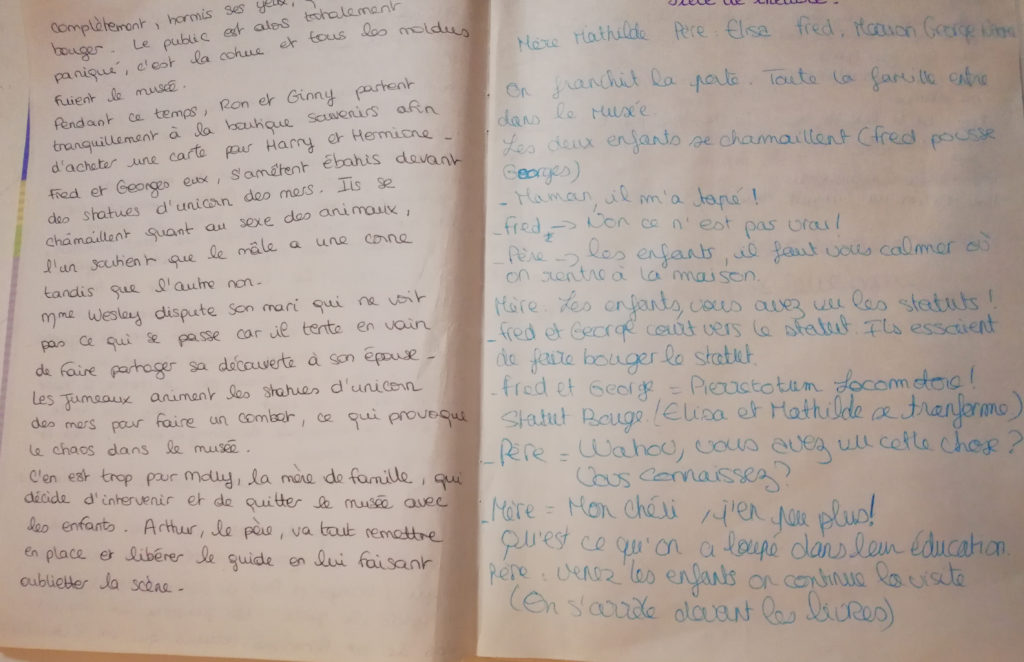 complètement, hormis ses yeux,
bouger. Le public est alors totalement
paniqué, c'est la cohue et tous les moldus
fuient le musée.
Pendant ce temps, Ron et Ginny partent
tranquillement à la boutique souvenirs afin
d'acheter une carte pour Harry et Hermione -
Fred et Georges eux, s'arrêtent ébahis devant
des statues d'unicorn des mers. Ils se
châmaillent quant au sexe des animaux,
l'un soutient que le mâle a une corne
tandis que l'autre non.
Mme Wesley dispute son mari qui ne voit
pas ce qui se passe car il tente en vain
de faire partager sa découverte à son épouse -
Les jumeaux animent les statues d'unicorn
des mers pour faire un combat, ce qui provoque
le chaos dans le musée.
C'en est trop pour Molly, la mère de famille, qui
décide d'intervenir et de quitter le musée avec
les enfants. Arthur, le père, va tout remettre
en place et libérer le guide en lui faisant
oublietter la scène.
Mère Mathilde Père : Elisa Fred, Manon George
On franchit la porte. Toute la famille entre
dans le Musée.
Les deux enfants se chamaillent (Fred pousse
Georges)
- Maman, il m'a tapé !
- Fred -> Non ce n'est pas vrai !
- Père -> les enfants, il faut vous calmer où
on rentre à la maison.
Mère : Les enfants, vous avez vu les statuts !
- Fred et George court vers le statut. Ils essaient
de faire bouger le statut.
- Fred et George = Pierrctotum Locomotore !
Statut Bouge. (Elisa et Mathilde se tranforme)
- Père = Wahou, vous avez vu cette chose ?
Vous connaissez ?
- Mère = Mon chéri, j'en peu plus !
Qu'est ce qu'on a loupé dans leur éducation.
Père : venez les enfants on continue la visite
(On s'arrête devant les livres)